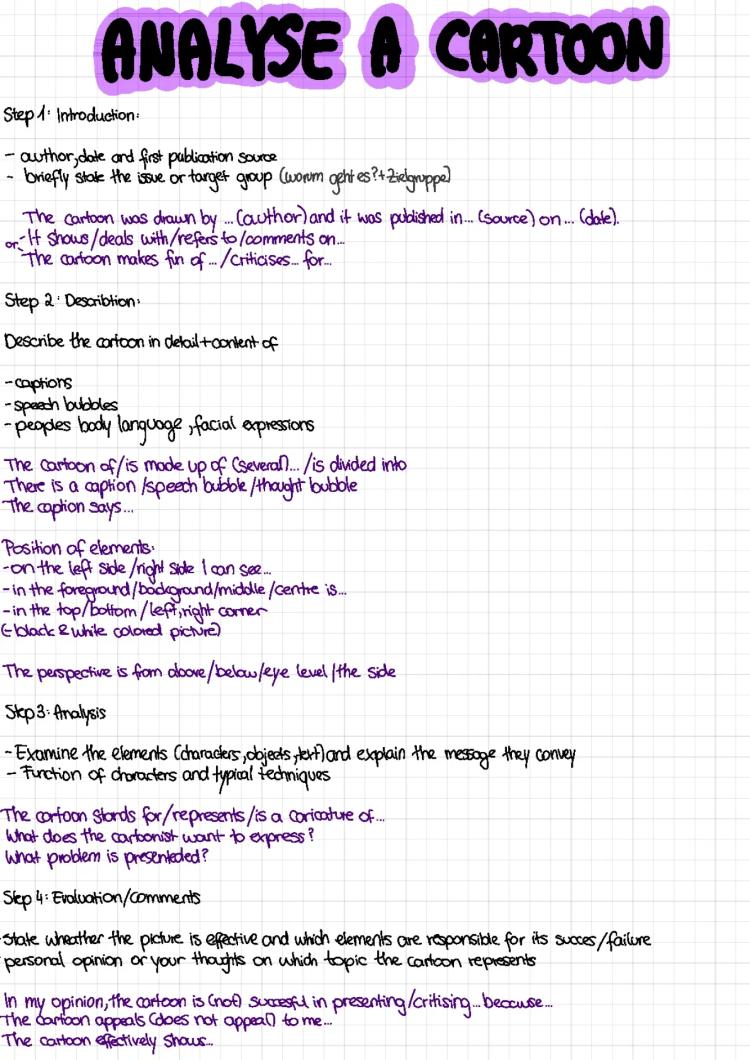 ANALYSE A CARTOON
Step 1: Introduction:
- author, date and first publication source
- briefly state the issue or target group (worum geht es?+Zielgruppe)
The cartoon was drawn by ... (author) and it was published in... (source) on... (date).
or: - It shows/deals with/refers to/comments on...
The cartoon makes fin of .../criticises... for...
Step 2: Describtion:
Describe the cartoon in detail+content of
- captions
- speech bubbles
- peoples body language, facial expressions
The cartoon of/is made up of (several)... /is divided into
There is a caption /speech bubble /thought bubble
The caption says...
Position of elements:
- on the left side /right side I can see...
- in the foreground/background/middle/centre is...
- in the top/bottom/left,right corner
(- black & white colored picture)
The perspective is from above/below/eye level/the side
Step 3: Analysis
- Examine the elements (characters, objects, text) and explain the message they convey
- Function of characters and typical techniques
The cartoon stands for/represents/is a caricature of...
What does the cartoonist want to express?
What problem is presenteded?
Step 4: Evaluation/comments
- state wheather the picture is effective and which elements are responsible for its succes/failure
personal opinion or your thoughts on which topic the cartoon represents
In my opinion, the cartoon is (not) succesful in presenting/critising... because...
The cartoon appeals (does not appeal) to me...
The cartoon effectively shows...